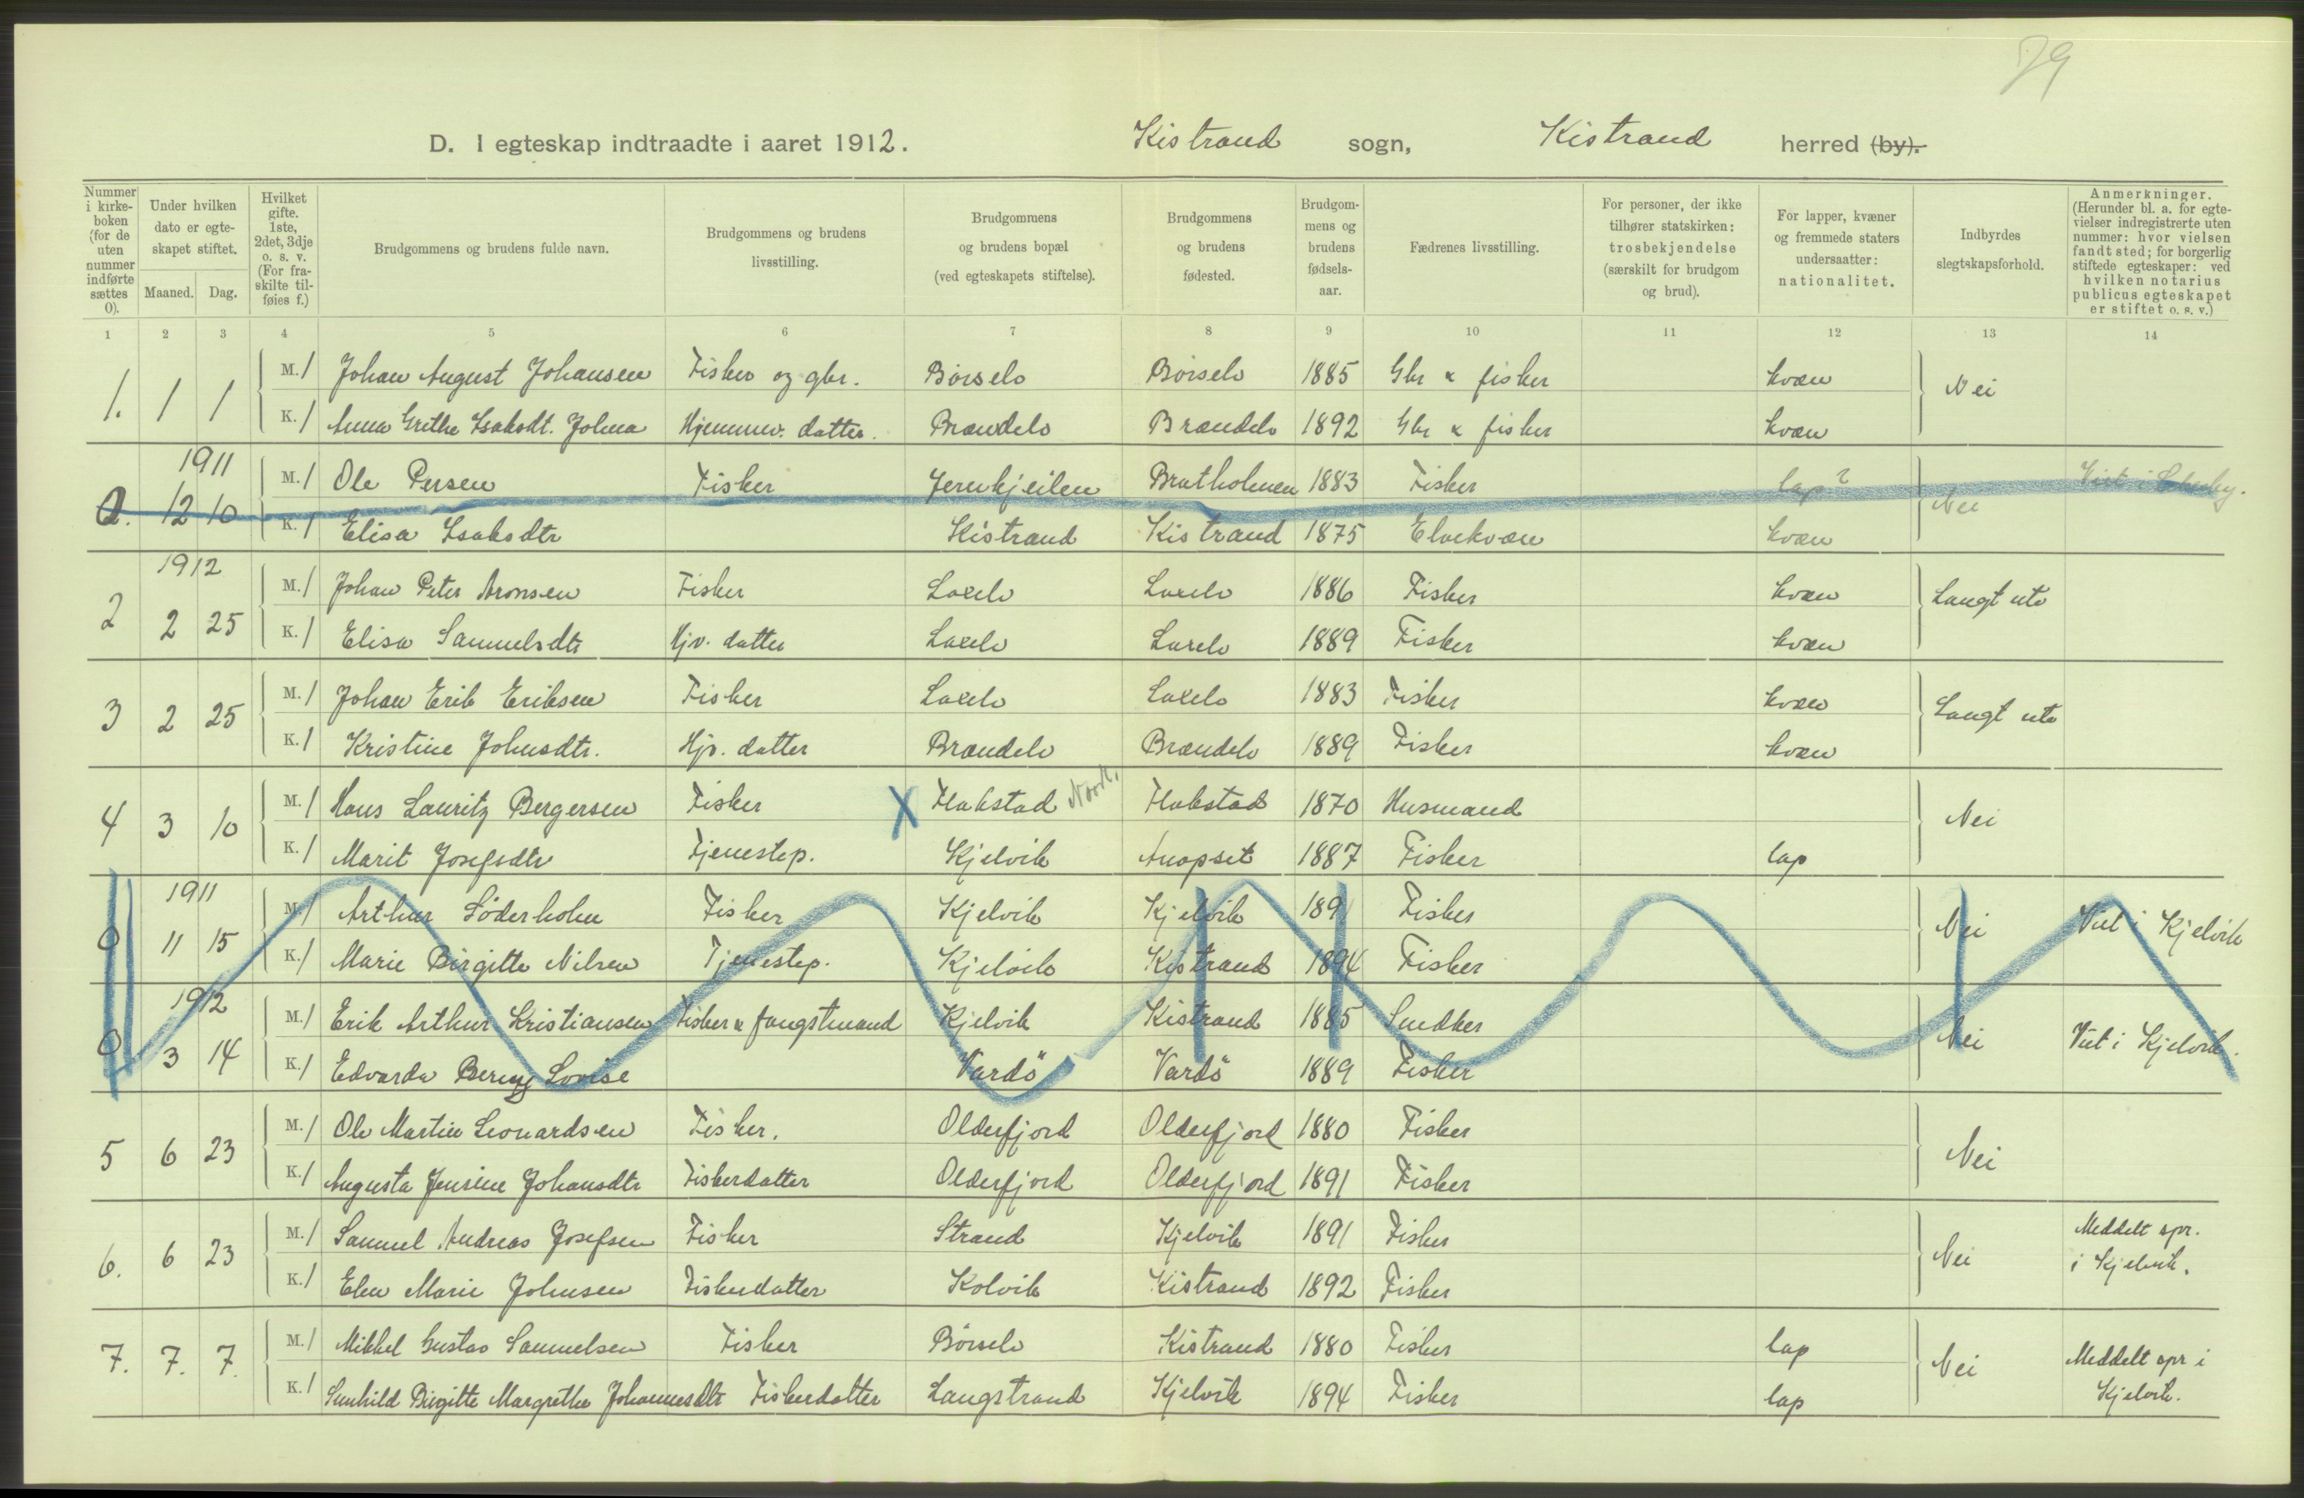 79
D. I egteskap indtraadte i aaret 1912. Kistrand sogn, Kistrand herred (by).
Nummer i kirkeboken (for de uten nummer indførte sættes 0).
Under hvilken dato er egteskapet stiftet.
Maaned. Dag.
Hvilket gifte. 1ste, 2det, 3dje o. s. v. (For fraskilte tilføies f.)
Brudgommens og brudens fulde navn.
Brudgommens og brudens livsstilling.
Brudgommens og brudens bopæl (ved egteskapets stiftelse).
Brudgommens og brudens fødested.
Brudgommens og brudens fødselsaar.
Fædrenes livsstilling.
For personer, der ikke tilhører statskirken: trosbekjendelse (særskilt for brudgom og brud).
For lapper, kvæner og fremmede staters undersaatter: nationalitet.
Indbyrdes slegtskapsforhold.
Anmerkninger. (Herunder bl. a. for egtevielser indregistrerte uten nummer: hvor vielsen fandt sted; for borgerlig stiftede egteskaper: ved hvilken notarius publicus egteskapet er stiftet o. s. v.)
1 2 3 4 5 6 7 8 9 10 11 12 13 14
1. 1 1 M. 1 Johan August Johansen Fisker og gbr. Börselv Börselv 1885 Gbr & fisker kvæn Nei
K. 1 Anna Grethe Isaksdt. Johna Hjemmev. datter. Brændelv Brændelv 1892 Gbr & fisker kvæn
1911
0. 12 10 M. 1 Ole Persen Fisker Jernkjeilen Bratholmen 1883 Fisker lap? Nei Viet i
K. 1 Elisa Isaksdtr Kistrand Kistrand 1875 Elvekvæn kvæn
1912
2 2 25 M. 1 Johan Peter Aronsen Fisker Laxelv Laxelv 1886 Fisker kvæn Langt ute
K. 1 Elisa Samuelsdtr Hjv. datter Laxelv Laxelv 1889 Fisker kvæn
3 2 25 M. 1 Johan Erik Eriksen Fisker Laxelv Laxelv 1883 Fisker kvæn Langt ute
K. 1 Kristine Johnsdtr. Hjv. datter Brændelv Brændelv 1889 Fisker kvæn
4 3 10 M. 1 Hans Lauritz Bergersen Fisker X Flakstad Flakstad 1870 Husmand Nei
K. 1 Marit Josefsdtr Tjenestep. Kjelvik Anopset 1887 Fisker lap
1911
0 11 15 M. 1 Arthur Söderholm Fisker Kjelvik Kjelvik 1891 Fisker Nei Viet i Kjelvik
K. 1 Marie Birgitte Nilsen Tjenestep. Kjelvik Kistrand 1894 Fisker
1912
0 3 14 M. 1 Erik Arthur Kristiansen Fisker & fangstmand Kjelvik Kistrand 1885 Snedker Nei Viet i Kjelvik.
K. 1 Edvarda Bering Lovise Vardö Vardö 1889 Fisker
5 6 23 M. 1 Ole Martin Leonardsen Fisker. Olderfjord Olderfjord 1880 Fisker Nei
K. 1 Augusta Jensine Johansdtr Fiskerdatter Olderfjord Olderfjord 1891 Fisker
6. 6 23 M. 1 Samuel Andreas Josefsen Fisker Strand Kjelvik 1891 Fisker Nei Meddelt opr. i Kjelvik.
K. 1 Elen Marie Johnsen Fiskerdatter Kolvik Kistrand 1892 Fisker
7. 7. 7. M. 1 Mikkel Gustav Samuelsen Fisker Börselv Kistrand 1880 Fisker lap Nei Meddelt opr i Kjelvik.
K. 1 Sunhild Birgitte Margrethe Johannesdtr Fiskerdatter Langstrand Kjelvik 1894 Fisker lap